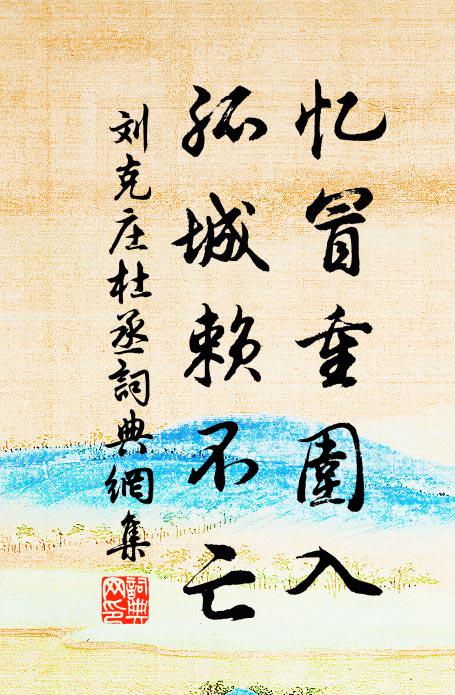 忆冒重围入
孤城赖不亡
刘克庄杜丞詞典網集
詞典